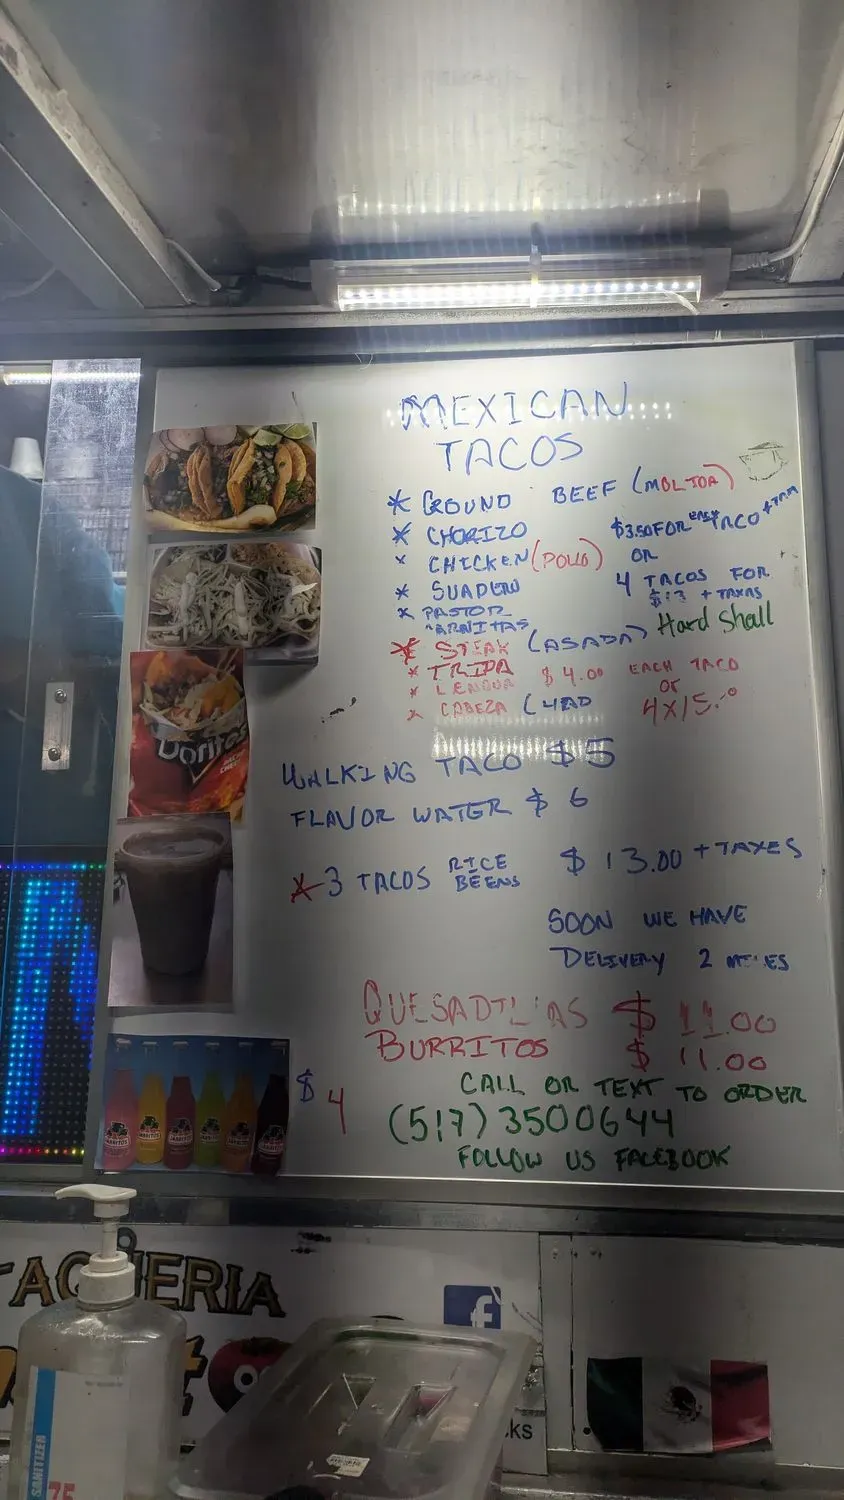 MEXICAN
TACOS
* GROUND BEEF (MOLTDA)
* CHORIZO
$3.50 FOR EACH TACO + TAX
* CHICKEN (POLLO)
OR
* SUADERO
4 TACOS FOR
$13 + TAXAS
* PASTOR
CARNITAS
Hard Shall
* STEAK (ASADA)
* TRIPA $4.00 EACH TACO
* LENGUA
OR
* CABEZA
4X15.00
WALKING TACO $5
FLAVOR WATER $6
* 3 TACOS RICE
BEENS
$13.00 + TAXES
SOON WE HAVE
DELIVERY 2 MILES
QUESADILLAS $11.00
BURRITOS $11.00
CALL OR TEXT TO ORDER
(517) 3500644
FOLLOW US FACEBOOK
$4
Doritos
JARRITOS
TAQUERIA
f
SANITIZER
75